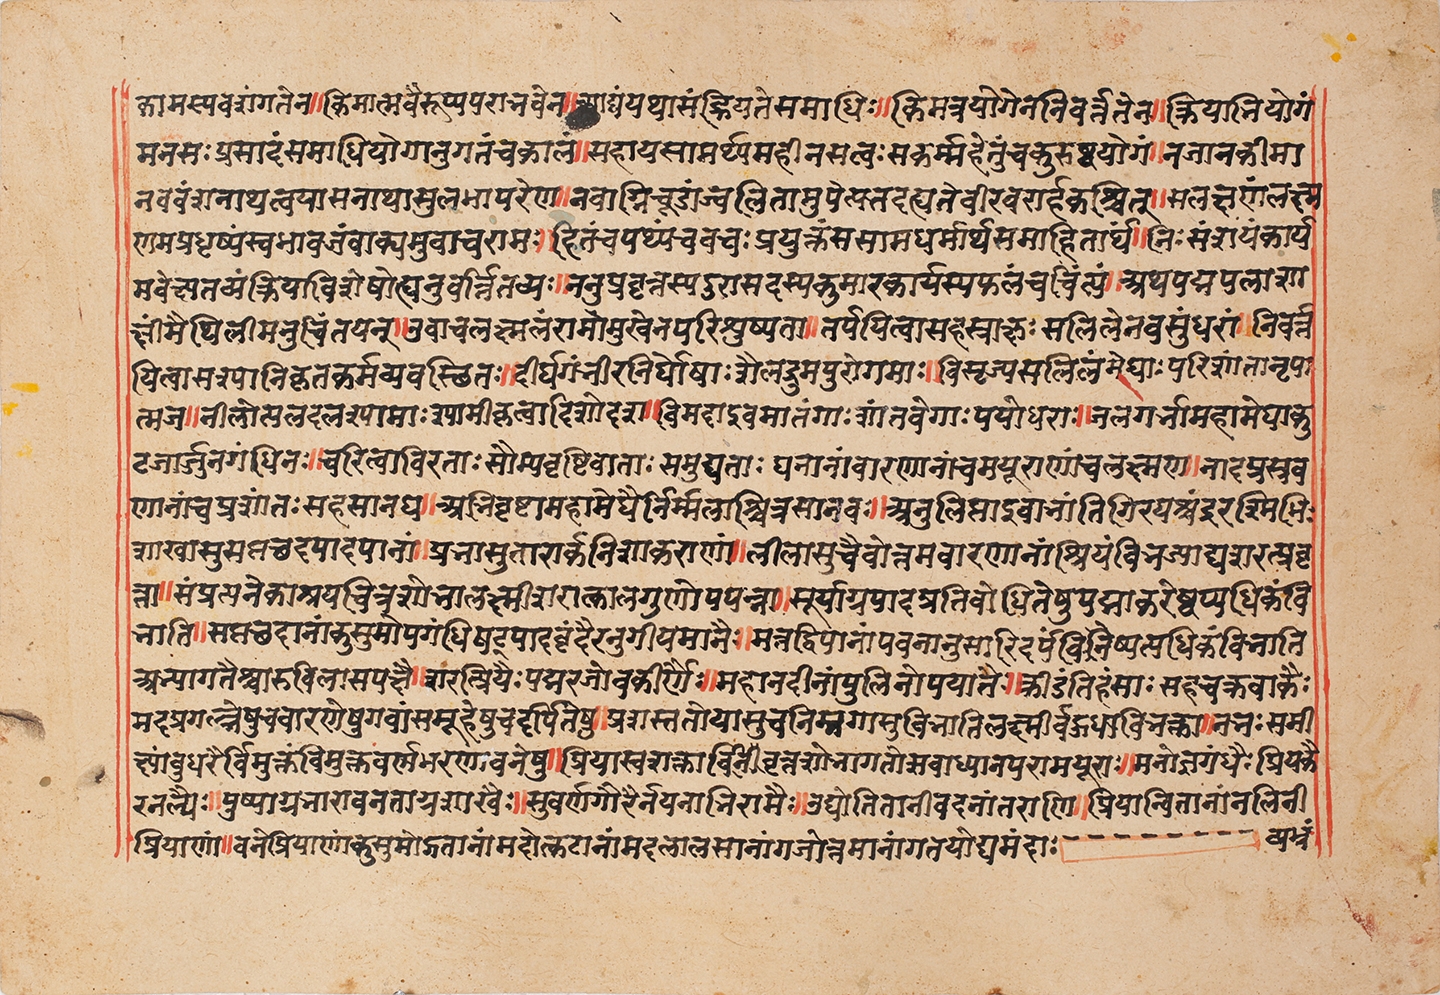 कामस्यवशंगतेन॥किमात्मवैरूप्यपराभवेन॥ यथासंह्रियतेसमाधिः॥किमत्रयोगेननिवर्त्ततेन॥क्रियाभियोगं
मनसःप्रसादंसमाधियोगानुगतंचकालं॥सहायसामर्थ्यमहीनसत्वःसकर्म्महेतुंचकुरुष्वयोगं॥नजानकीमा
नववंशनाथत्वयासनाथासुलभापरेण॥नचाग्निचूडांज्वलितामुपेत्यनदह्यतेवीरवरार्हकश्चित्॥सलक्ष्मणंलक्ष्म
णमप्रधृष्यंस्वभावजंवाक्यमुवाचरामः॥हितंचपथ्यंचवचःप्रयुक्तंससामधर्मार्थसमाहितार्घं॥निःसंशयंकार्य
मवेक्षितव्यंक्रियाविशेषोह्यनुवर्त्तितव्यः॥ननुप्रवृत्तस्यदुरासदस्यकुमारकार्यस्यफलंचचिंत्यं॥अथपद्मपलाशा
क्षींमैथिलीमनुचिंतयन्॥उवाचलक्ष्मणंरामोमुखेनपरिशुष्यता॥तर्पयित्वासहस्राक्षःसलिलेनवसुंधरां॥निवर्त्त
यित्वासस्यानिकृतकर्मव्यवस्थितः॥दीर्घगंभीरनिर्घोषाःशैलद्रुमपुरोगमाः॥विसृज्यसलिलंमेघाःपरिशांतानृपा
त्मज॥नीलोत्पलदलश्यामाःश्यामीकृत्वादिशोदश॥विमदाइवमातंगाःशांतवेगाःपयोधराः॥जलगर्भामहामेघाकु
टजार्जुनगंधिनः॥चरित्वाविरताःसौम्यवृष्टिवाताःसमुद्यताः घनानांवारणानांचमयूराणांचलक्ष्मण॥नादप्रस्रव
णानांचप्रशांतःसहसानघ॥अभिवृष्टामहामेघैर्निर्म्मलाश्चित्रसानवः॥अनुलिप्ताइवाभांतिगिरयश्चंद्ररश्मिभिः
शाखासुसप्तच्छदपादपानां॥प्रभासुतारार्कनिशाकराणां॥लीलासुचैवोत्तमवारणानांश्रियंविभज्याद्यशरत्प्रवृ
त्ता॥संप्रत्यनेकाश्रयचित्रशोभालक्ष्मीशरत्कालगुणोपपन्ना॥सूर्याग्रपादप्रतिबोधितेषुपद्माकरेष्वप्यधिकंवि
भाति॥सप्तच्छदानांकुसुमोपगंधिषट्पादवृंदैरनुगीयमानैः॥मत्तद्विपानांपवनानुसारिदर्पंविनेष्यत्यधिकंविभाति
अभ्यागतैश्चारुविलासपक्षैः॥शरत्प्रियैःपद्मरजोवकीर्णैः॥महानदीनांपुलिनोपयातैः॥क्रीडंतिहंसाःसहचक्रवाकैः
मदप्रगल्भेषुचवारणेषुगवांसमूहेषुचदर्पितेषु॥प्रशस्ततोयासुचनिम्नगासुविभातिलक्ष्मीर्बहुधाविभक्ता॥नभःसमी
क्ष्यांबुधरैर्विमुक्तंविमुक्तबर्हाभरणावनेषु॥प्रियास्व शोभागतो ध्यानपरामयूराः॥मनोज्ञगंधैःप्रियकै
रनल्पैः॥पुष्पाग्रभारावनताग्रशाखैः॥सुवर्णगौरैर्नयनाभिरामैः॥उद्योतितानीवदनांतराणि॥प्रियान्वितानांनलिनी
प्रियाणां॥वनेप्रियाणांकुसुमोद्गतानांमदोत्कटानांमदलालसानांगजोत्तमानांगतयोद्यमंदाः